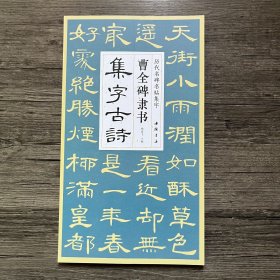 天街小雨潤如酥草色
遥看近却無
最是一年春
好處絶勝煙柳滿皇都
歷代名碑名帖集字
曹全碑隷书
集字古詩